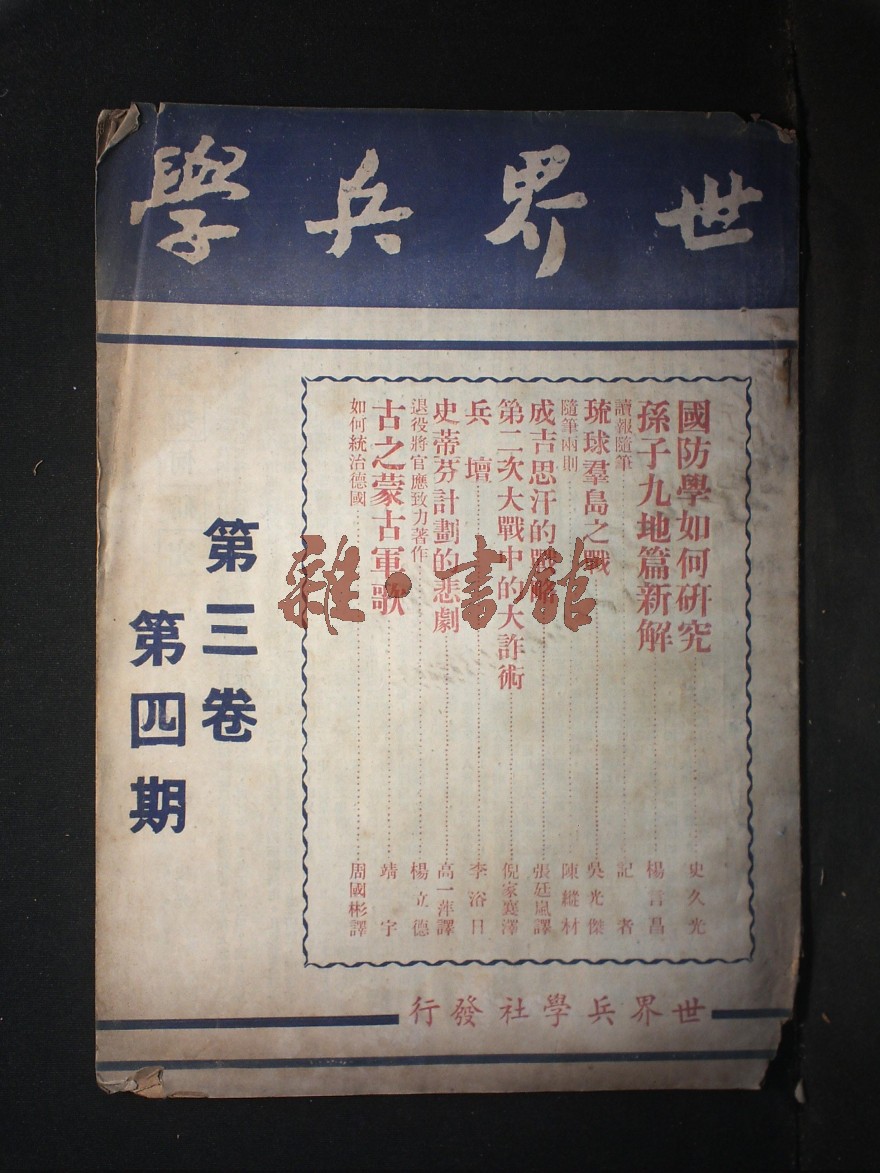 世界兵學
國防學如何研究 史久光
孫子九地篇新解 楊言昌
讀報隨筆 記者
琉球羣島之戰 吳光傑
隨筆兩則 陳縱材
成吉思汗的戰略 張廷嵐譯
第二次大戰中的大詐術 倪家襄澤
兵壇 李浴日
史蒂芬計劃的悲劇 高一萍譯
退役將官應致力著作 楊立德
古之蒙古軍歌 靖宇
如何統治德國 周國彬譯
第三卷
第四期
世界兵學社發行
雜·書館